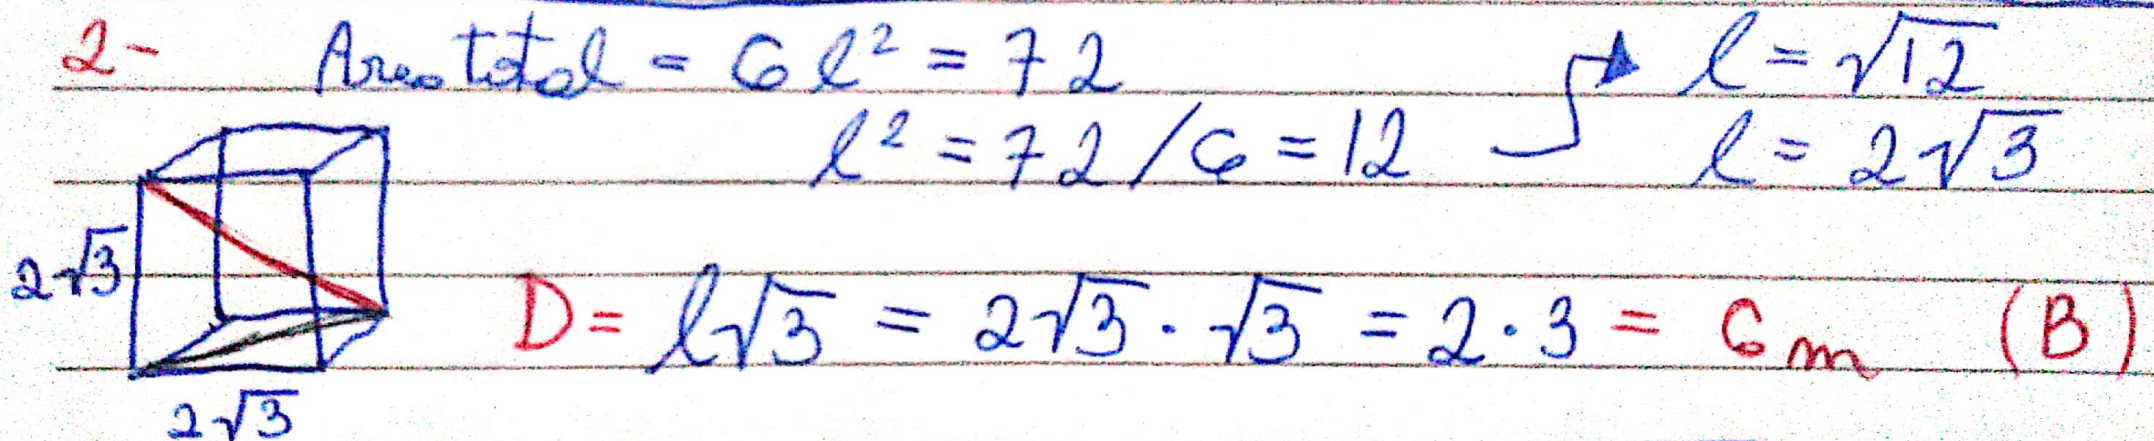 2- Área total = 6l² = 72
l² = 72/6 = 12
l = √12
l = 2√3
2√3
2√3
D = l√3 = 2√3 · √3 = 2·3 = 6m (B)